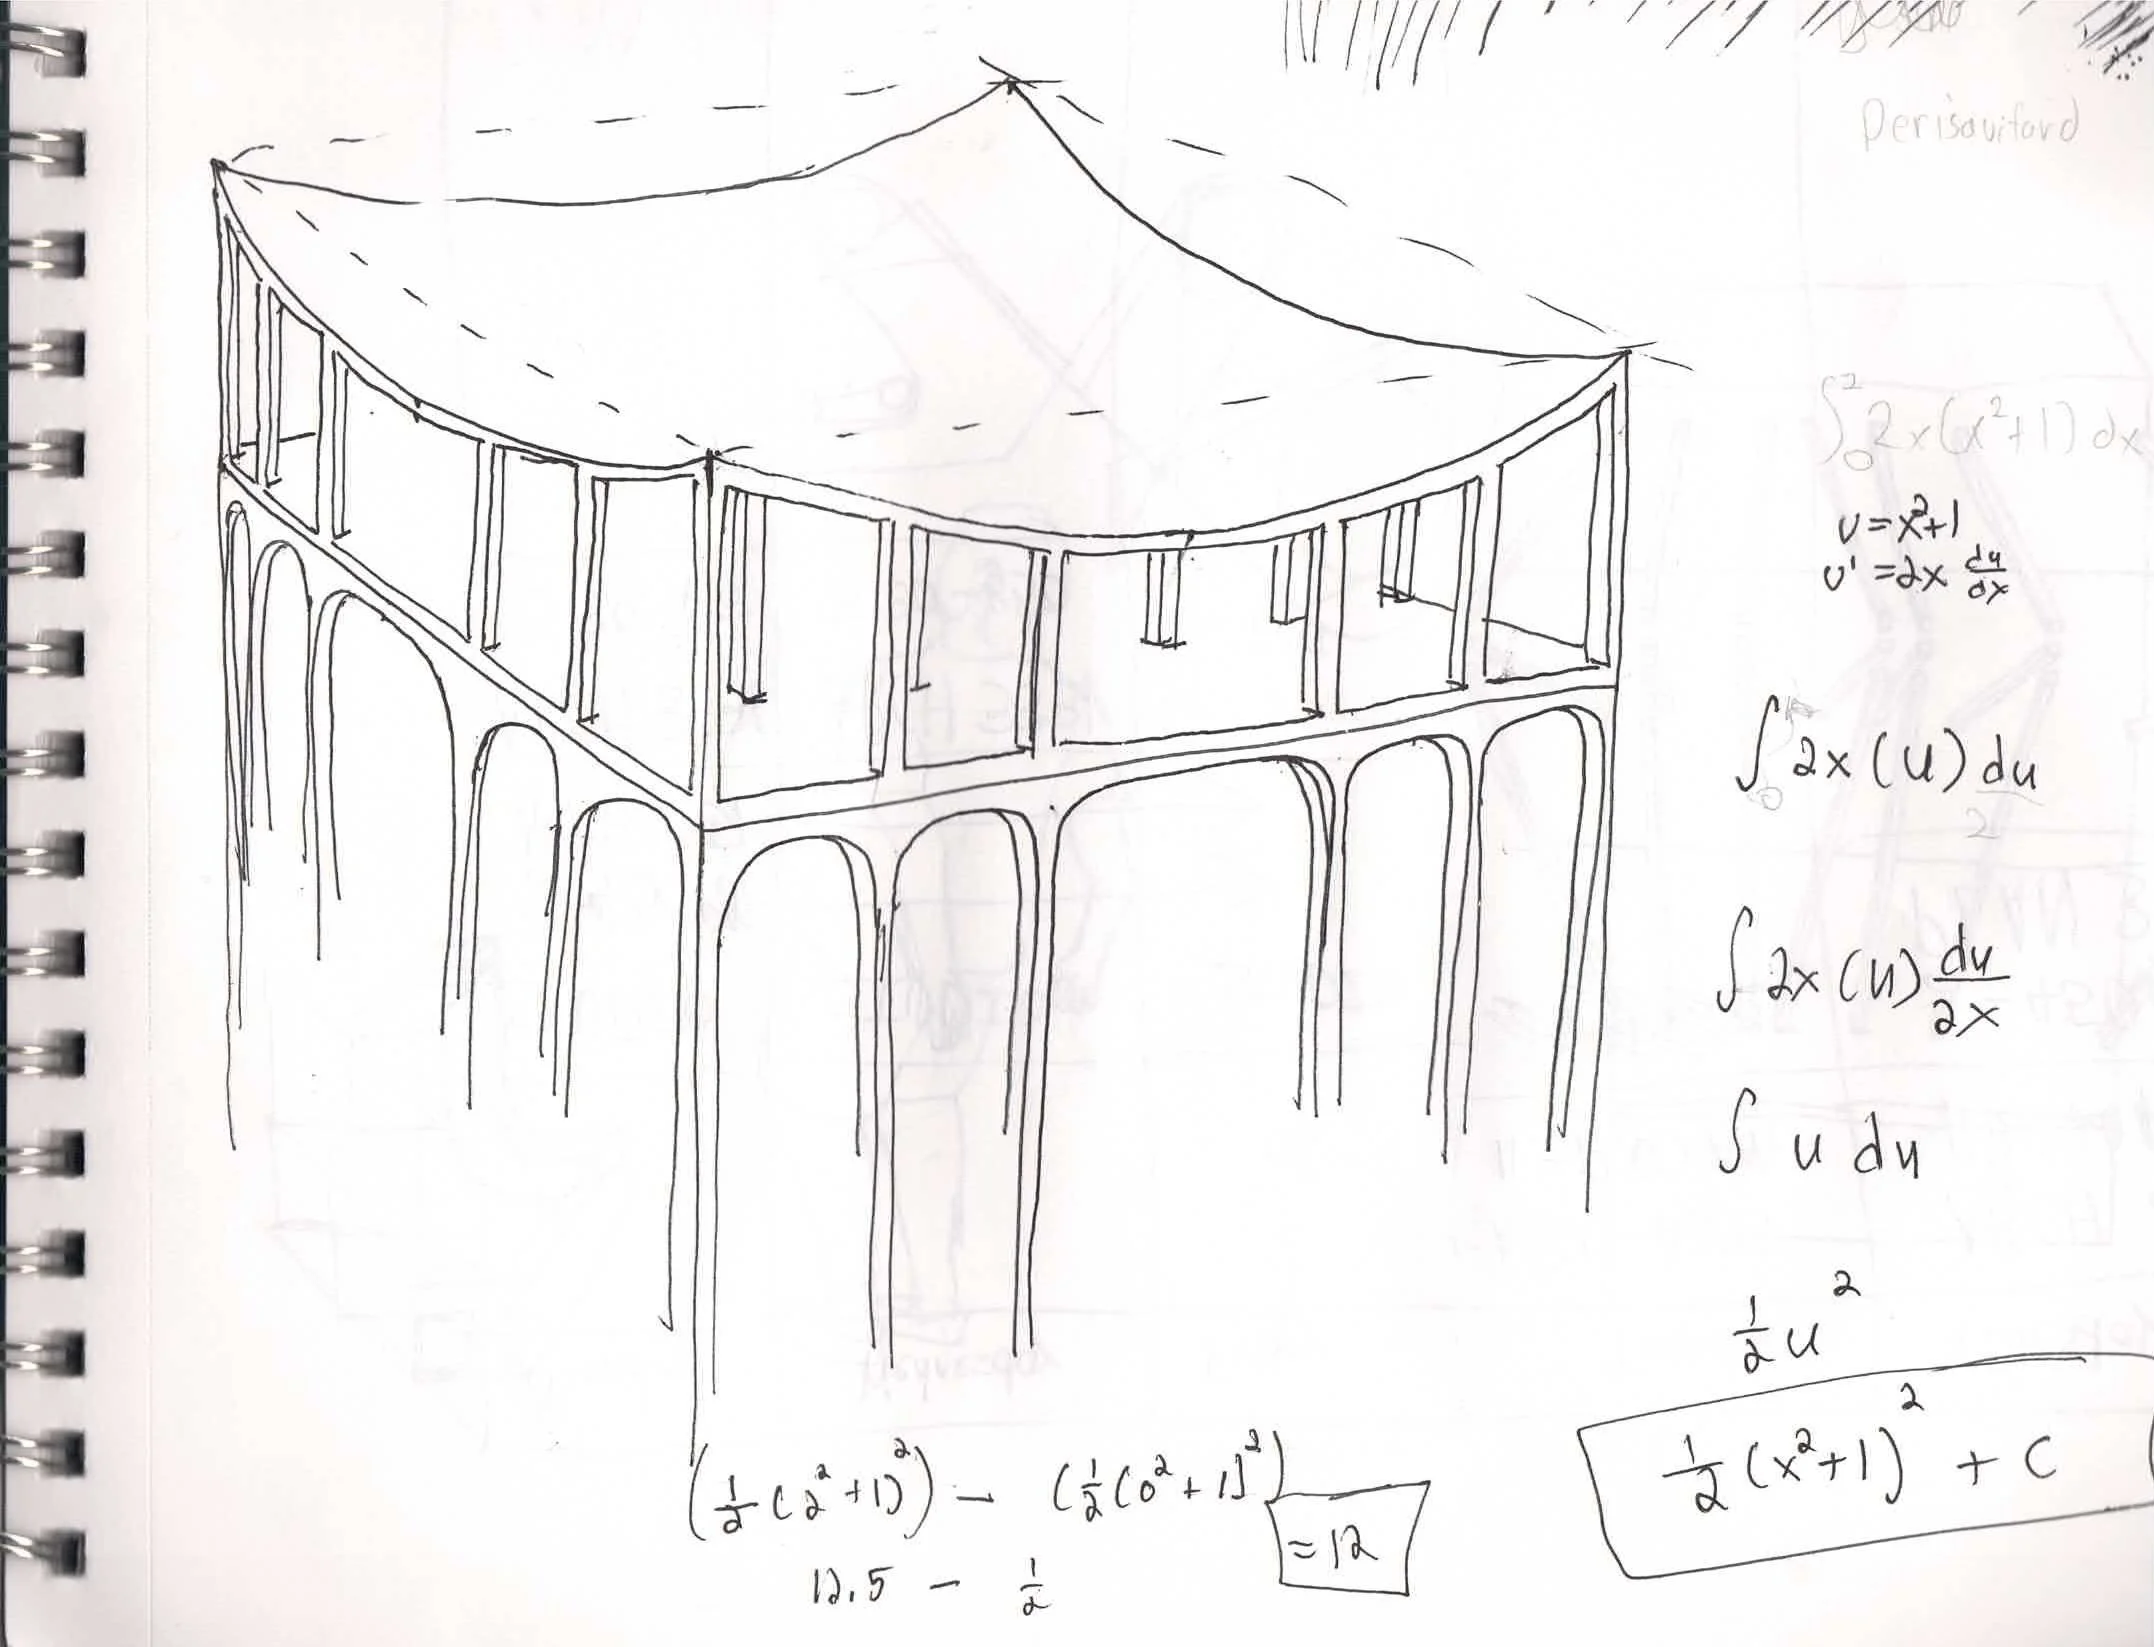 ∫₀² 2x(x²+1) dx
u = x²+1
u' = 2x du/dx
∫₀ 2x (u) du/2
∫ 2x (u) du/2x
∫ u du
½ u²
½ (x²+1)² + C
(½ (2²+1)²) – (½ (0²+1)²)
= 12
12.5 – ½